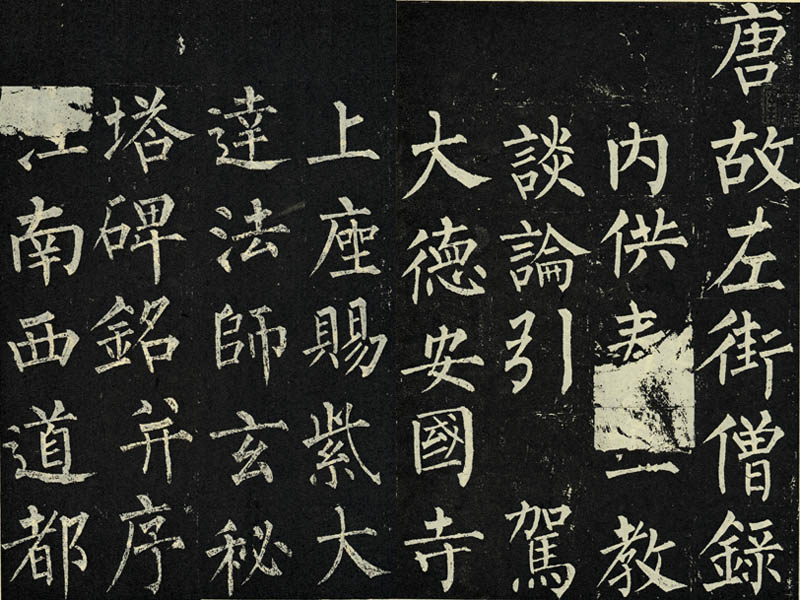 唐故左街僧錄
内供教
談論引 駕
大德安國寺
上座賜紫大
達法師玄秘
塔碑銘并序
江南西道都